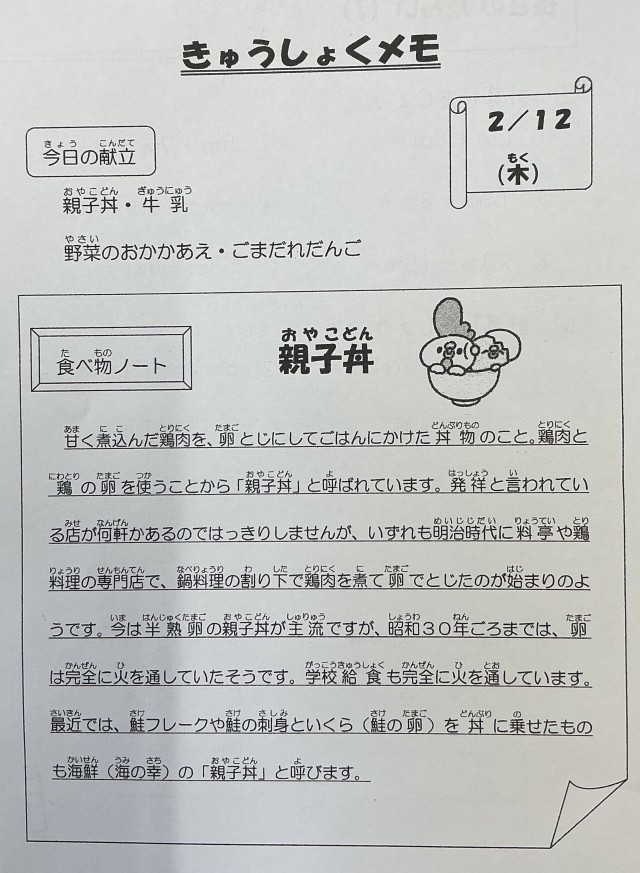 きゅうしょくメモ
2／12
(木)
今日の献立
親子丼・牛乳
野菜のおかかあえ・ごまだれだんご
食べ物ノート
親子丼
甘く煮込んだ鶏肉を、卵とじにしてごはんにかけた丼物のこと。鶏肉と
鶏の卵を使うことから「親子丼」と呼ばれています。発祥と言われてい
る店が何軒かあるのではっきりしませんが、いずれも明治時代に料亭や鶏
料理の専門店で、鍋料理の割り下で鶏肉を煮て卵でとじたのが始まりのよ
うです。今は半熟卵の親子丼が主流ですが、昭和３０年ごろまでは、卵
は完全に火を通していたそうです。学校給食も完全に火を通しています。
最近では、鮭フレークや鮭の刺身といくら（鮭の卵）を丼に乗せたもの
も海鮮（海の幸）の「親子丼」と呼びます。